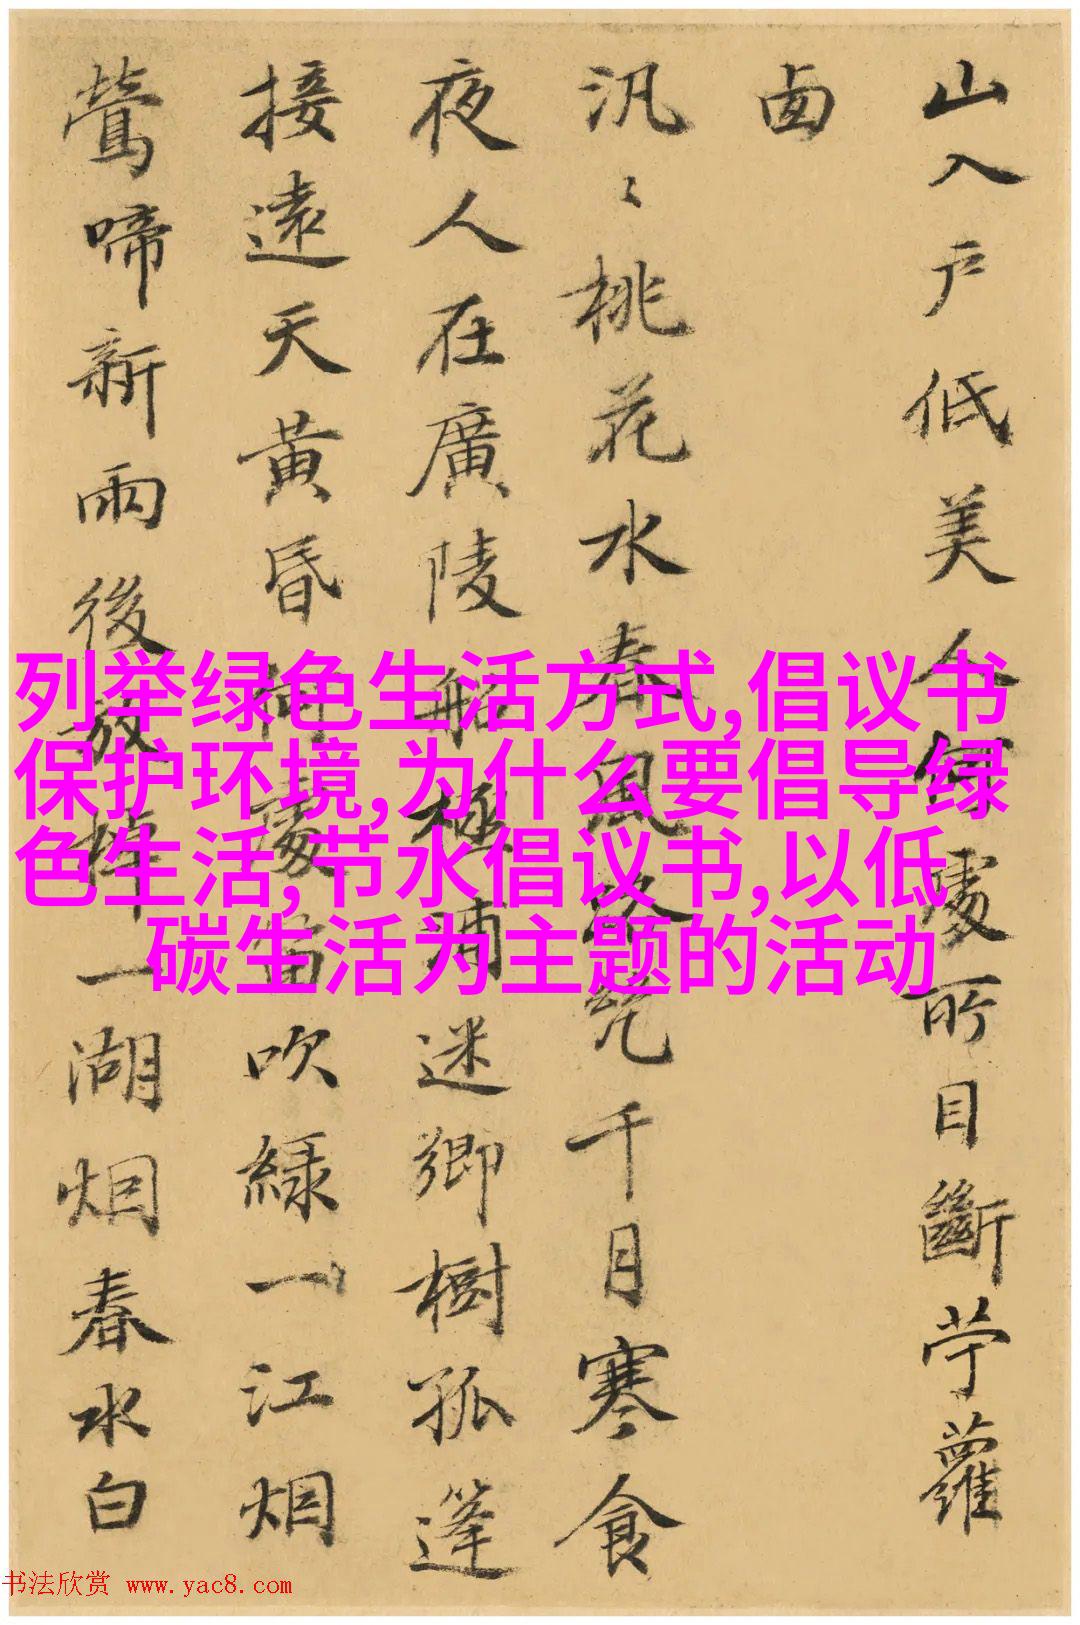 山入戶低美人何處所目斷苧蘿
卤
汎〻桃花水春風千月寒食
夜人在廣陵船極浦迷鄉樹孤篷
接遠天黃昏何處笛吹綠一江烟
鶯啼新雨後放棹一湖烟春水白
列举绿色生活方式,倡议书
保护环境,为什么要倡导绿
色生活,节水倡议书,以低
碳生活为主题的活动
书法欣赏 www.yac8.com